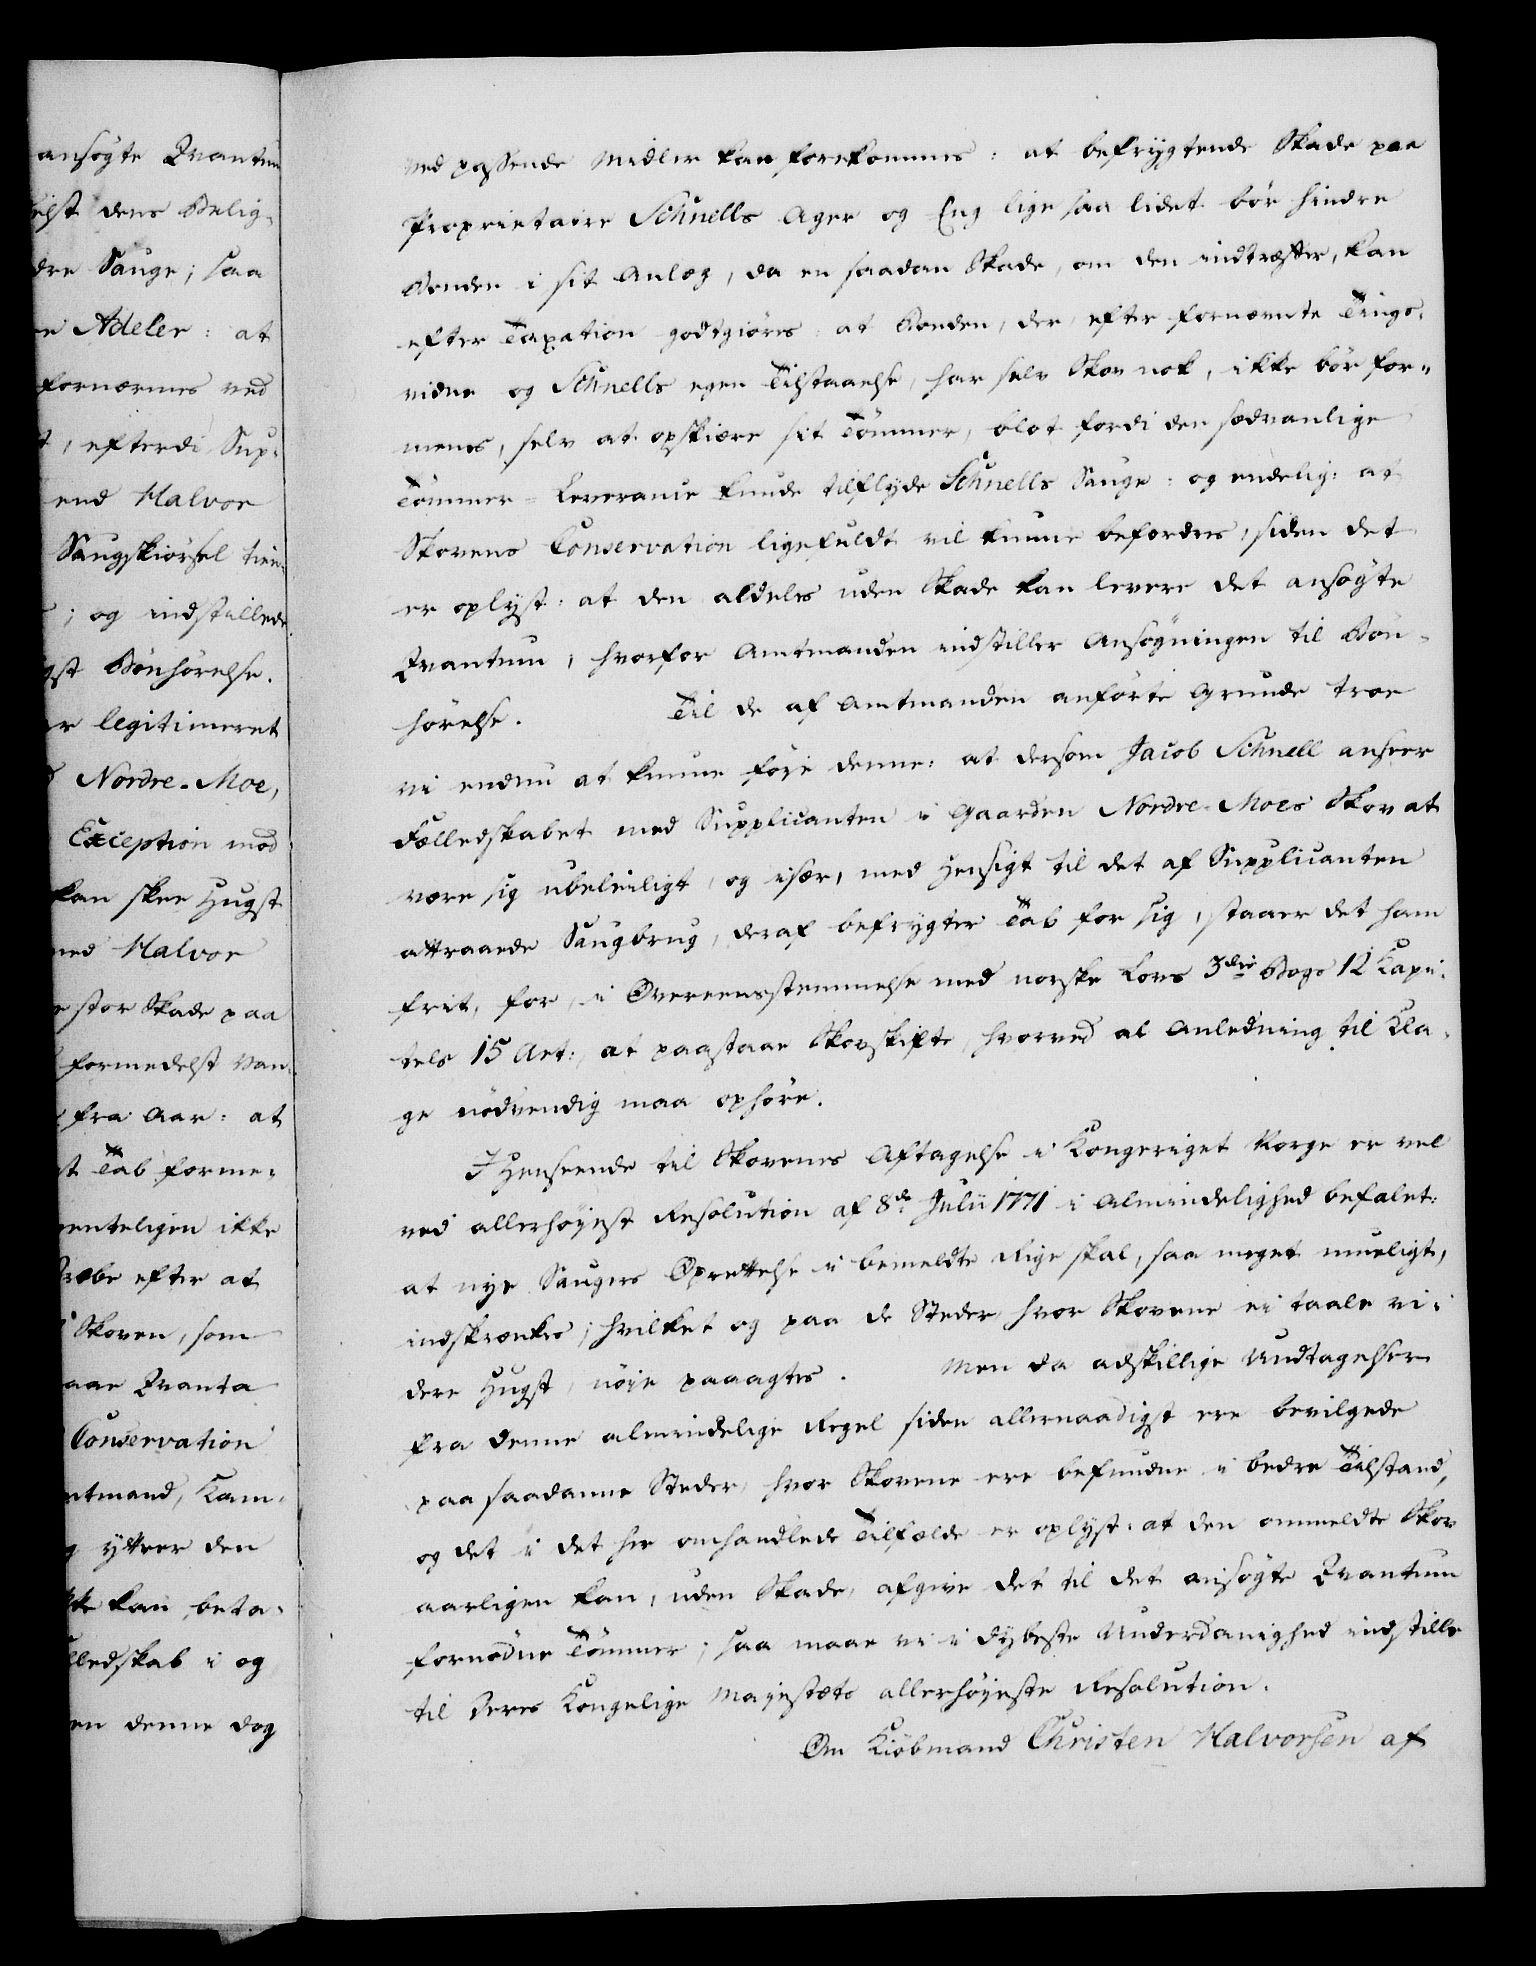 ansøgte Qvantum
helst dens Belig-
dre Sauge; saa
Adeler: at
fornærmes ved
efterdi Sup-
end Halvor
Saugskiørsel
; og indstillede
Bønhørelse.
legitimeret
Nordre-Moe,
Exception mod
kan skee Hugst
med Halvor
stor Skade paa
formedelst Van-
fra Aar: at
Tab forme-
ikke
efter at
Skoven, som
Qvanta
Conservation
Amtmand, Kam-
yttrer den
kan beta-
i og
denne dog
ved passende Midler kan forekommes: at befrygtende Skade paa
Proprietaire Schnells Ager og Eng lige saa lidet bør hindre
Bonden i sit Anlæg, da en saadan Skade, om den indtræffer, kan
efter Taxation godtgiøres: at Bonden, der, efter fornævnte Tings-
vidne og Schnells egen Tilstaaelse, har selv Skov nok, ikke bør for-
menes, selv at opskiære sit Tømmer, blot fordi den sædvanlige
Tømmer-Leverance kunde tilflyde Schnells Sauge: og endelig: at
Skovens Conservation ligefuldt vil kunne befordres, siden det
er oplyst: at den aldeles uden Skade kan levere det ansøgte
Qvantum, hvorfor Amtmanden indstiller Ansøgningen til Bøn-
hørelse. Til de af Amtmanden anførte Grunde troe
vi endnu at kunne føye denne: at dersom Jacob Schnell anseer
Fælledskabet med Supplicanten i Gaarden Nordre-Moes Skov at
være sig ubeleiligt, og især, med Hensigt til det af Supplicanten
attraaede Saugbrug, deraf befrygter Tab for sig, staaer det ham
frit, for, i Overeensstemmelse med norske Lovs 3die Bogs 12 Kapi-
tels 15 Art:, at paastaae Skovskifte, hvorved al Anledning til Kla-
ge nødvendig maa ophøre.
I Henseende til Skovenes Aftagelse i Kongeriget Norge er vel
ved allerhøyest Resolution af 8de Julii 1771 i Almindelighed befalet:
at nye Sauges Oprettelse i bemeldte Rige skal, saa meget mueligt,
indskrænkes; hvilket og paa de Steder, hvor Skovene ei taale vi-
dere Hugst, nøye paaagtes. Men da adskillige Undtagelser
fra denne almindelige Regel siden allernaadigst ere bevilgede
paa saadanne Steder, hvor Skovene ere befundne i bedre Tilstand,
og det i det her omhandlede Tilfælde er oplyst: at den ommeldte Skov
aarligen kan, uden Skade, afgive det til det ansøgte Qvantum
fornødne Tømmer; saa maae vi i dybeste Underdanighed indstille
til Deres Kongelige Majestæts allerhøyeste Resolution.
Om Kiøbmand Christen Halvorsen af